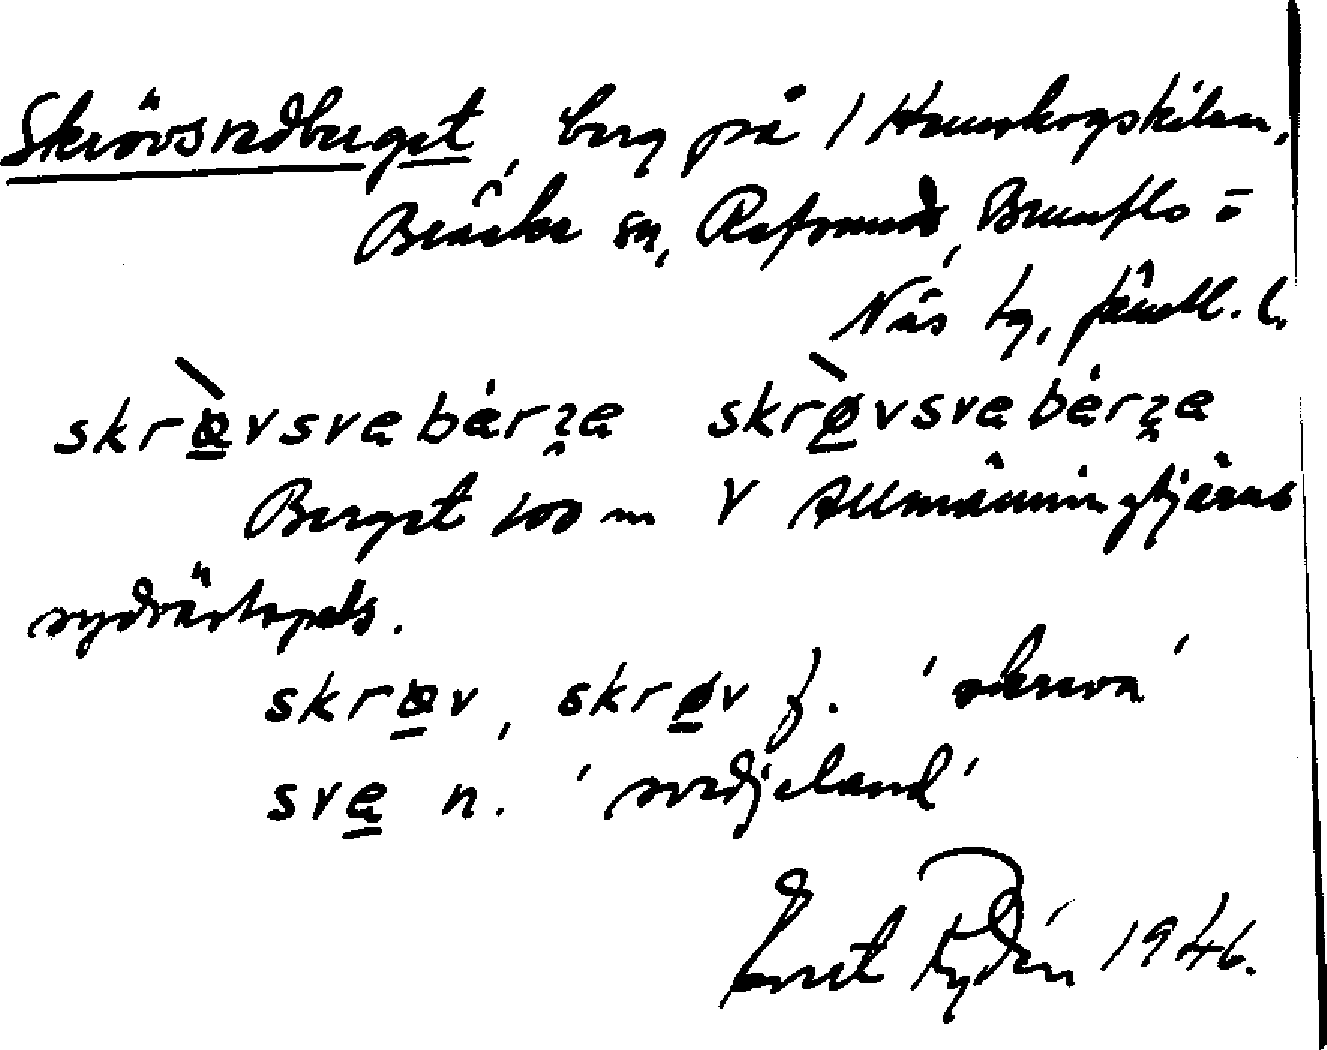 Skrövsvedberget, berg på 1 Hemskogskilen,
Bräcke sn, Refsunds, Brunflo o
Näs tg, Jämtl. l.
skrœ̀vsvebérʒe skrø̀vsvebérʒe
Berget 100 m V Allmänningstjärns
sydvästspets.
skrœv, skrøv f. 'skreva'
sve n. 'svedjeland'
Ernst Rydén 1946.